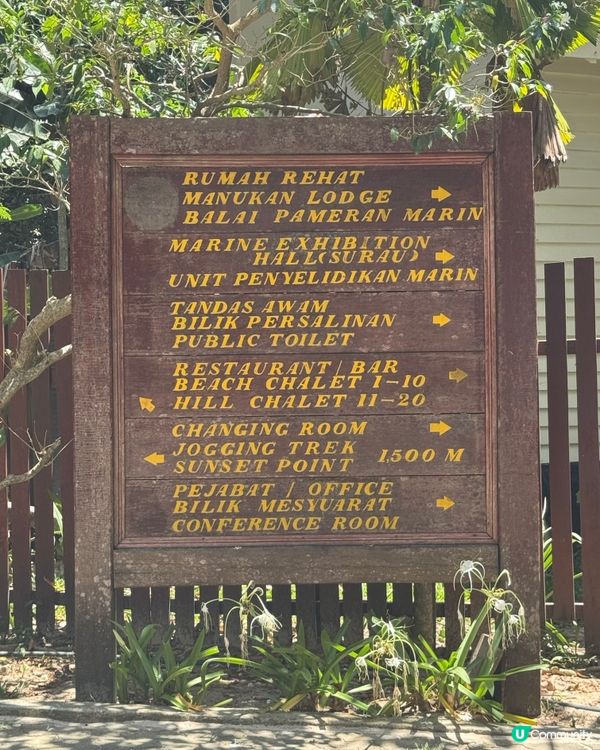 RUMAH REHAT
MANUKAN LODGE
BALAI PAMERAN MARIN
MARINE EXHIBITION
HALL(SURAU)
UNIT PENYELIDIKAN MARIN
TANDAS AWAM
BILIK PERSALINAN
PUBLIC TOILET
RESTAURANT / BAR
BEACH CHALET 1-10
HILL CHALET 11-20
CHANGING ROOM
JOGGING TREK 1,500 M
SUNSET POINT
PEJABAT / OFFICE
BILIK MESYUARAT
CONFERENCE ROOM
U Community